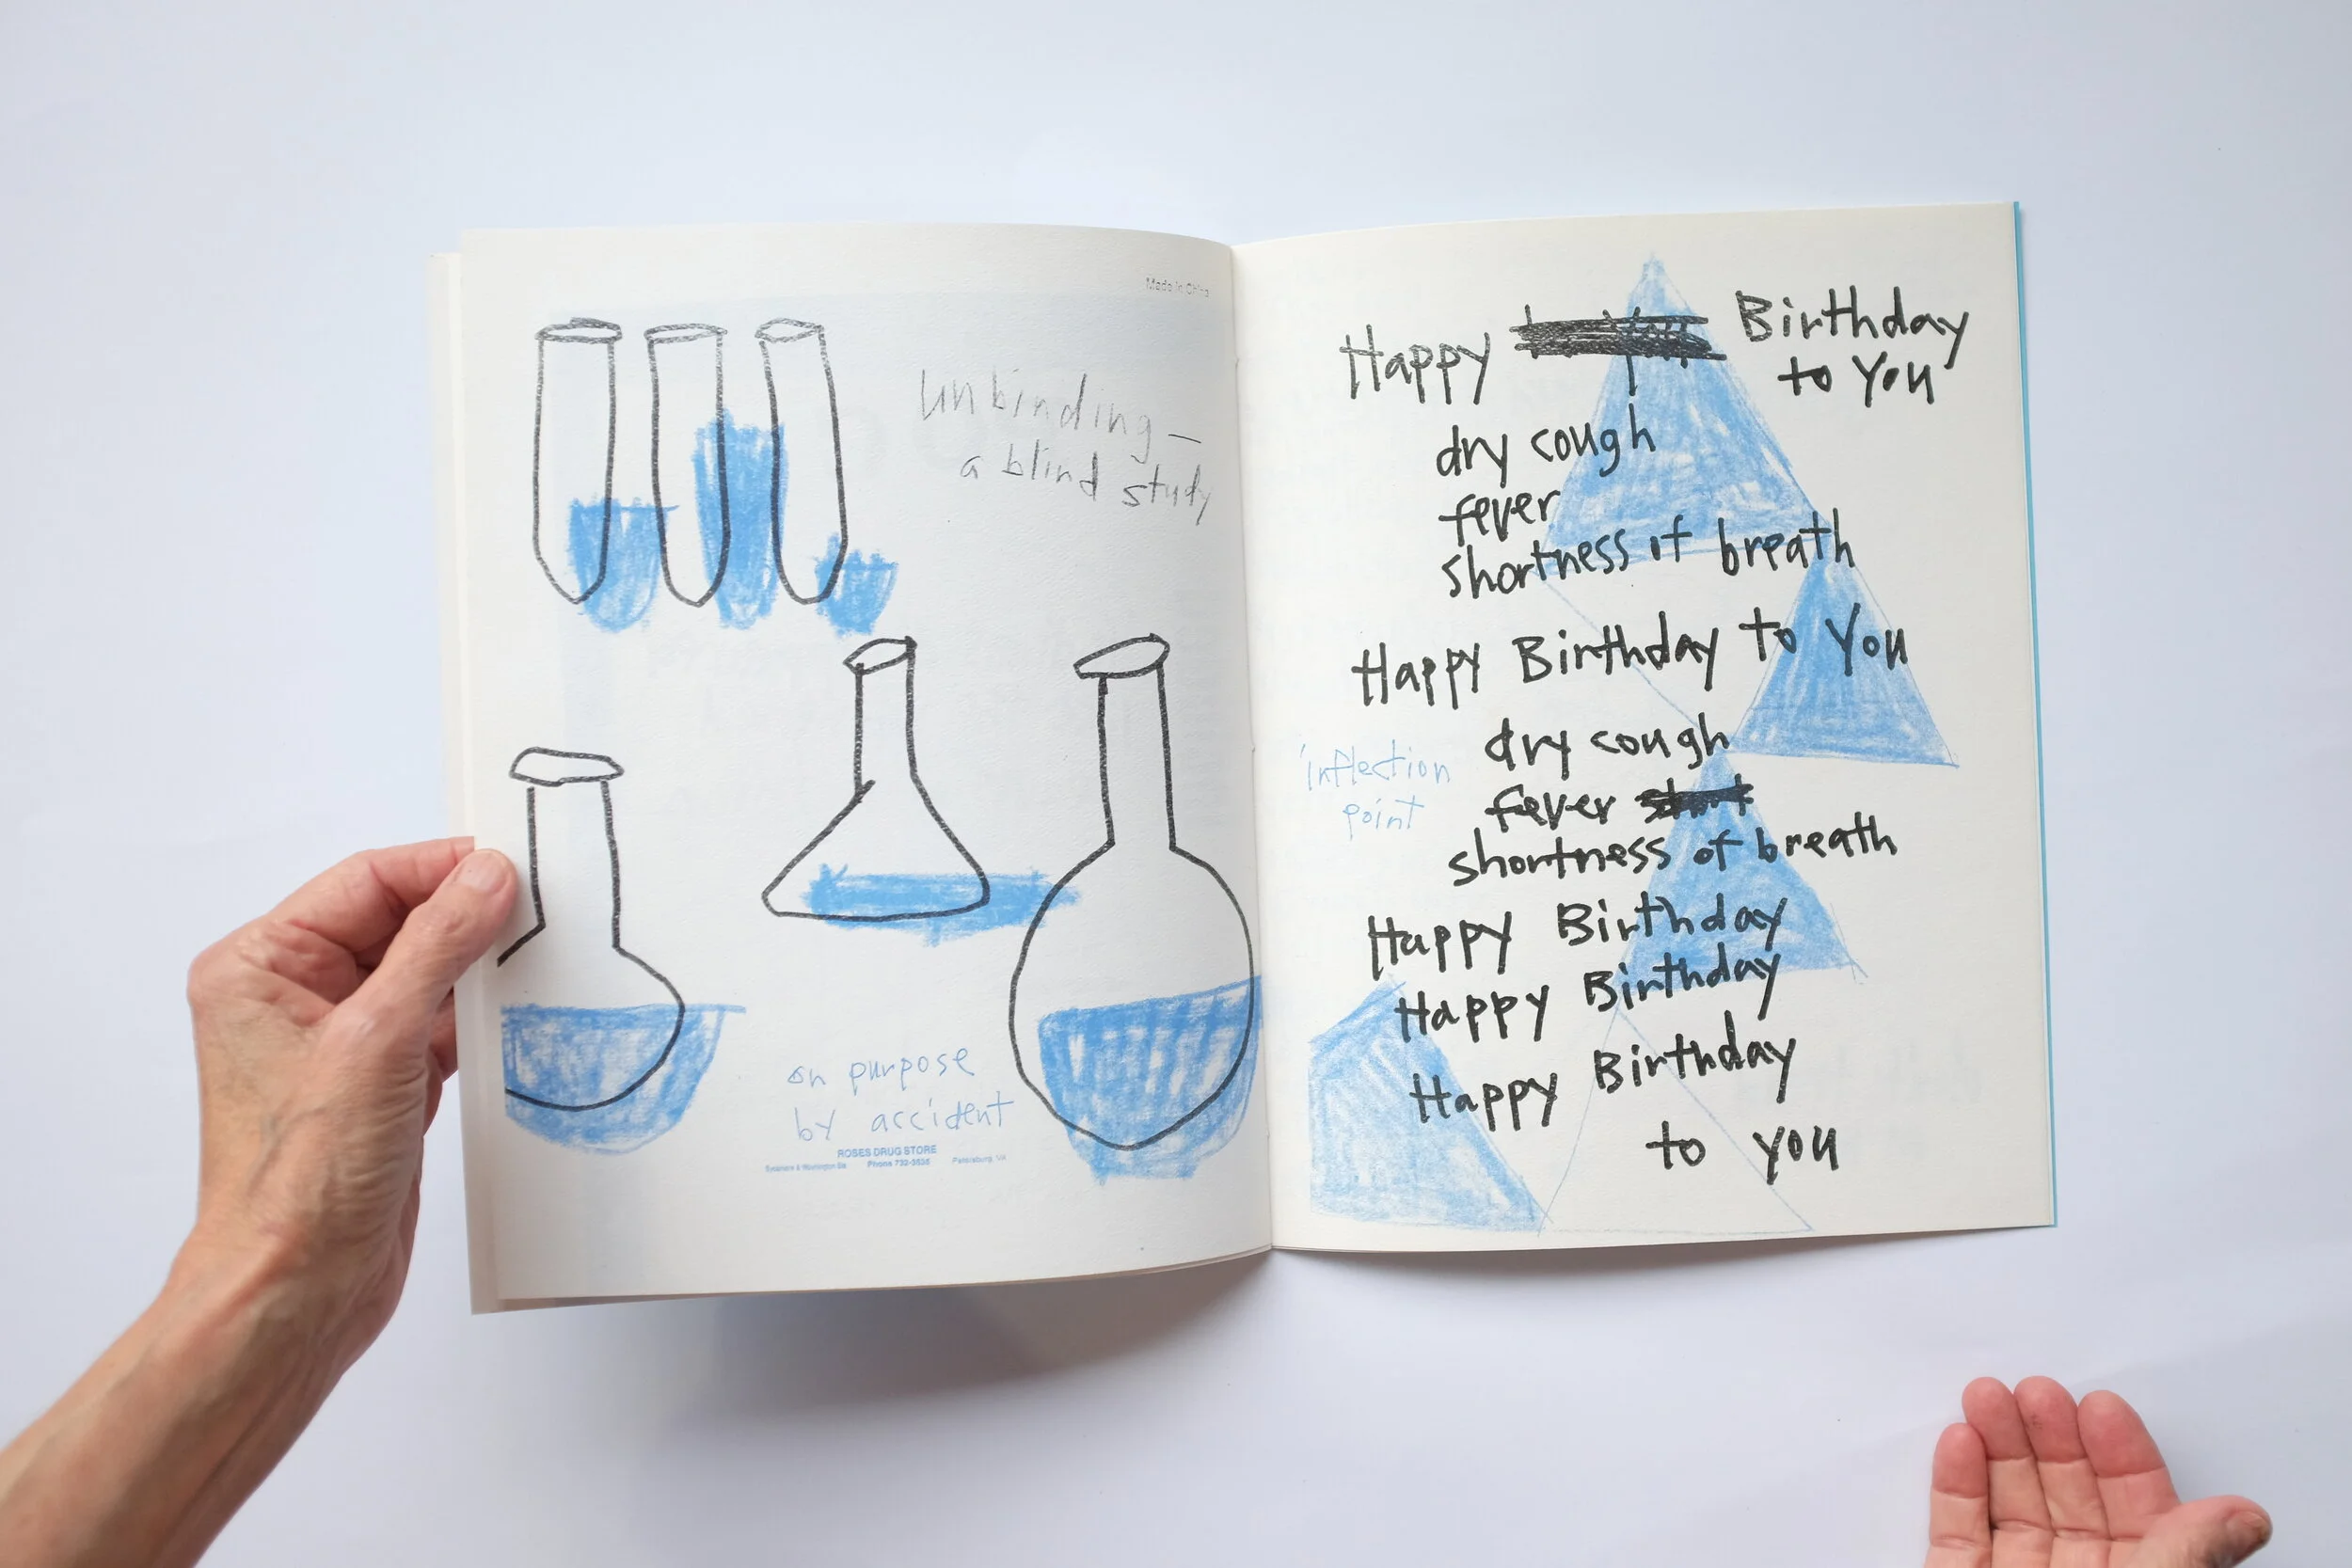 Made in China
unbinding —
a blind study
on purpose
by accident
ROSES DRUG STORE
Phone 732-3535
Happy Birthday
to You
dry cough
fever
shortness of breath
Happy Birthday to You
inflection
point
dry cough
fever
shortness of breath
Happy Birthday
Happy Birthday
Happy Birthday
to you